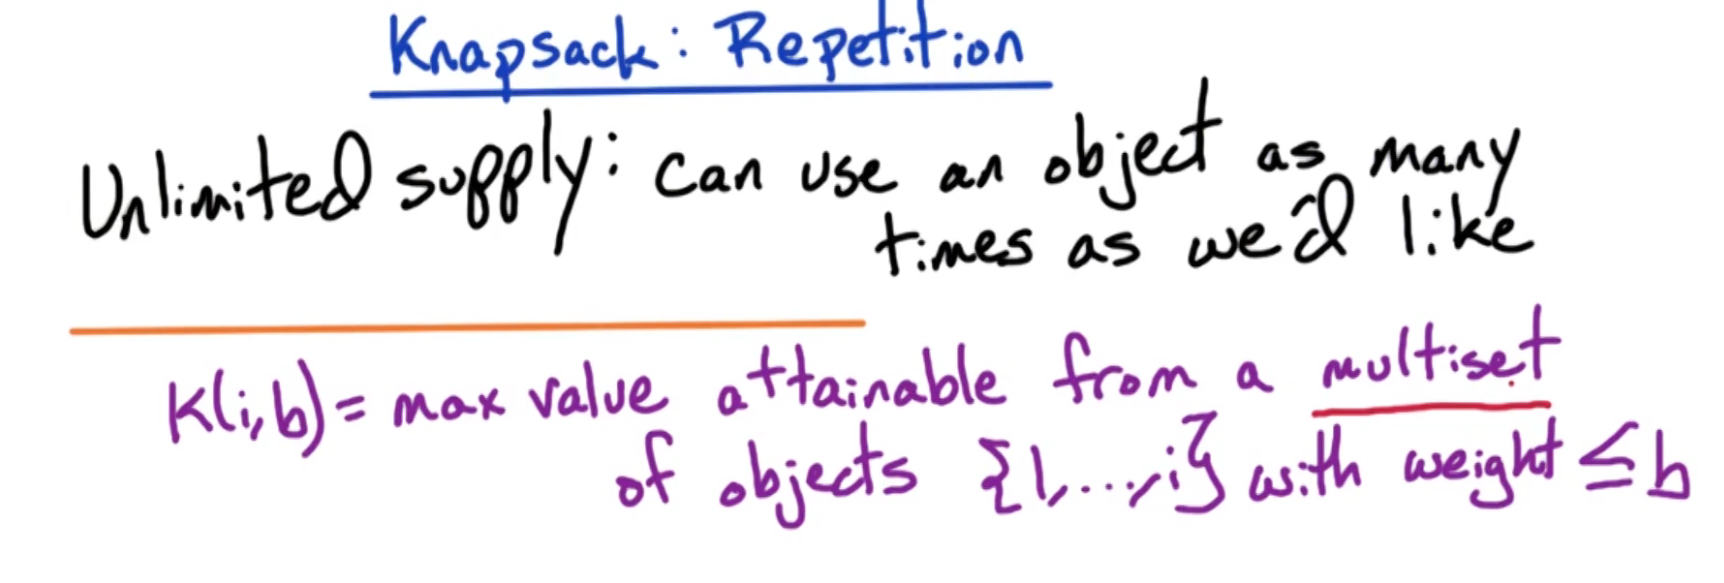 Knapsack: Repetition
Unlimited supply: can use an object as many
times as we'd like
K(i,b) = max value attainable from a multiset
of objects {1,...,i} with weight ≤ b